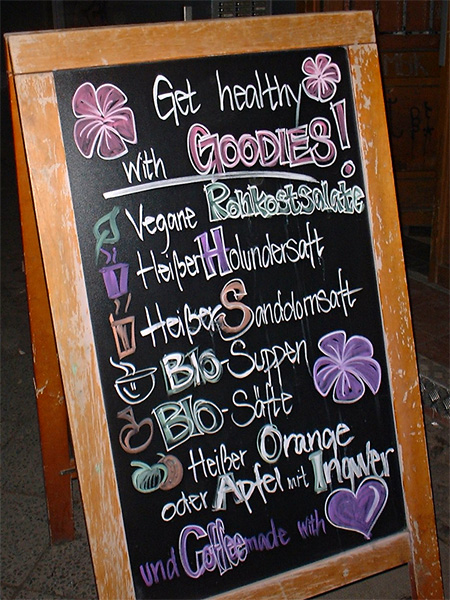 Get healthy
with GOODIES!
Vegane Rohkostsalate
Heißer Holundersaft
Heißer Sanddornsaft
BIO-Suppen
BIO-Säfte
Heißer Orange
oder Apfel mit Ingwer
und Coffee made with